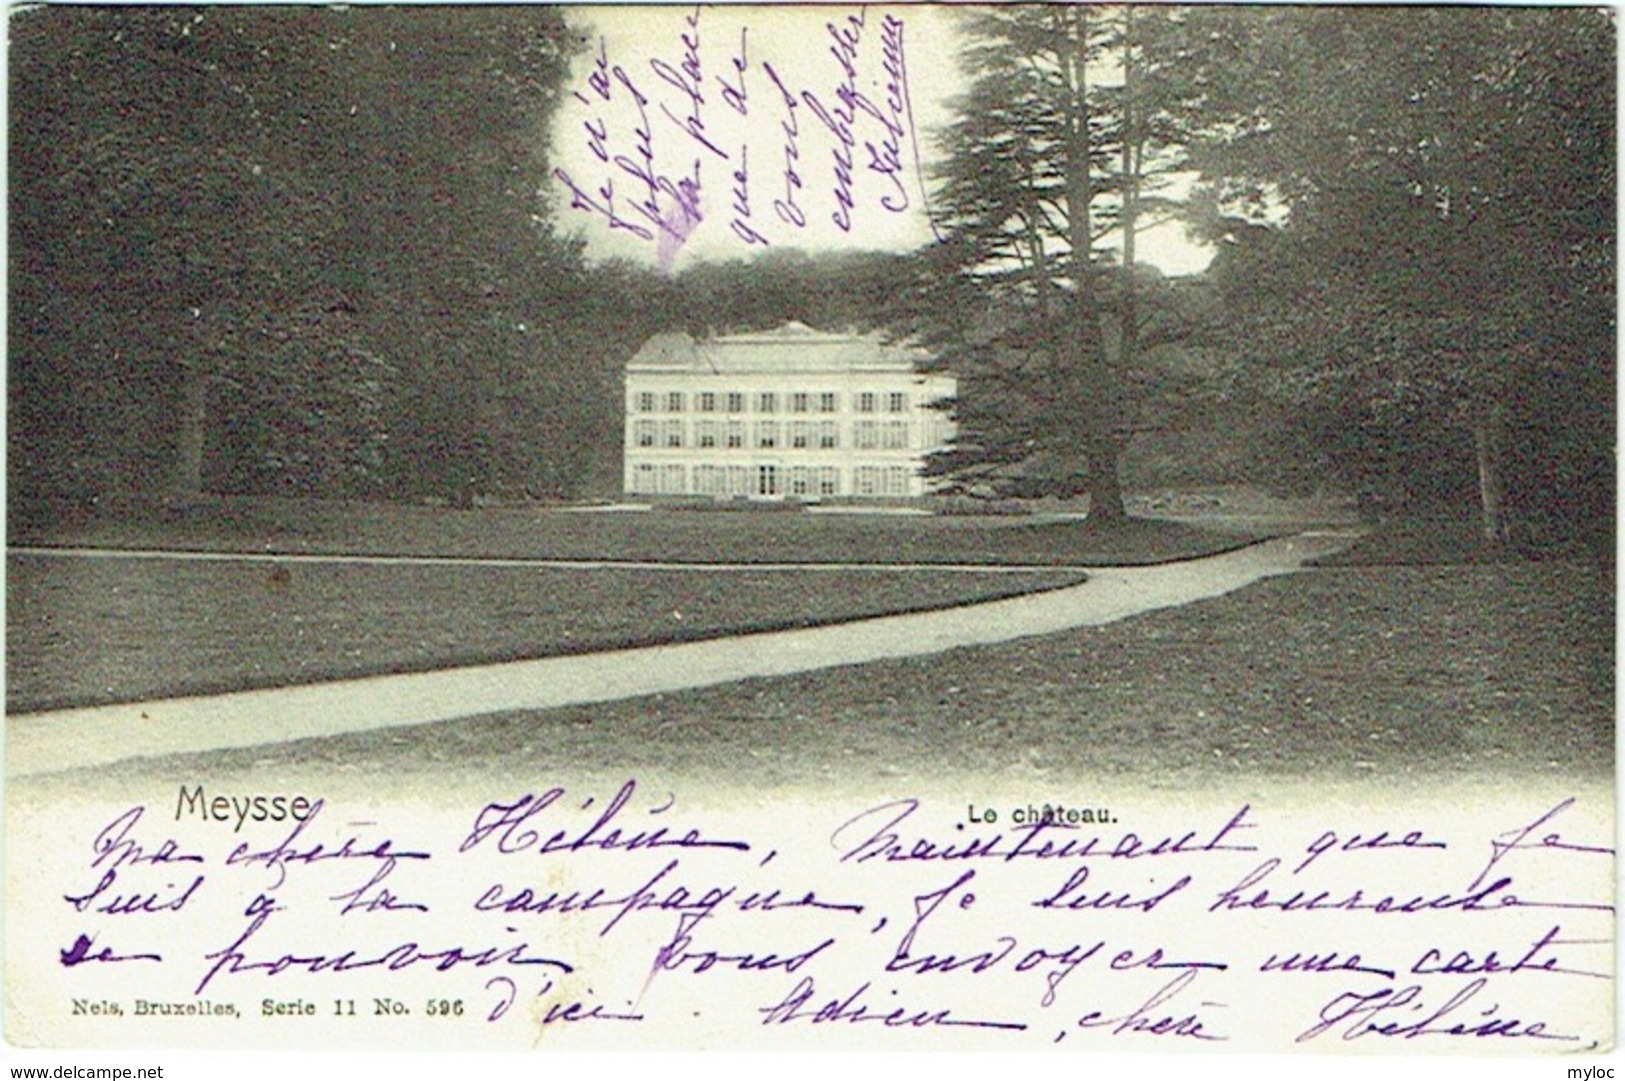 Je n'ai
plus
la place
que de
vous
embrasser
Meysse
Le château.
Ma chère Hélène, Maintenant que je
suis à la campagne, je suis heureuse
de pouvoir vous envoyer une carte
d'ici. Adieu, chère Hélène,
Nels, Bruxelles, Serie 11 No. 596
www.delcampe.net
myloc